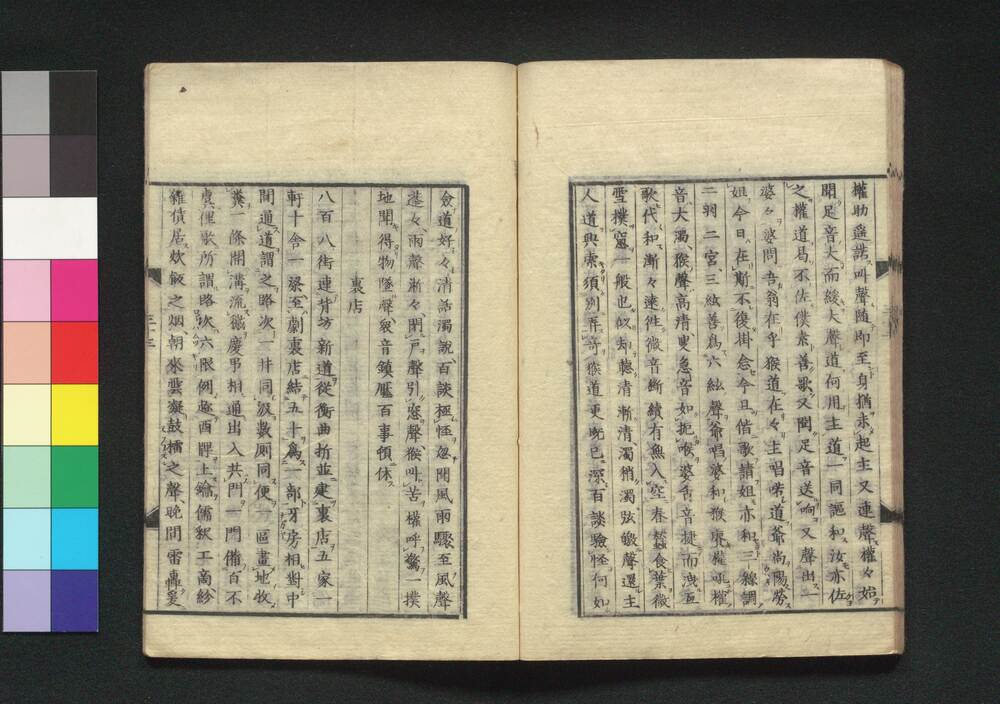 權助過諾叫聲随即至身猶未起主又連聲權々始
聞足音大而緩大聲道何用主道一同謳和汝亦佐
之權道曷不佐僕素善歌又聞足音送响又聲出一
婆々婆問吾翁在乎猴道在々主唱喏道爺尚陽勞
姐今日在斯不復掛念今且偕歌請姐亦和三線調
二羽二宮三絃善爲六絃聲爺唱婆和猴吼權
音大濁猴聲高清叟急音如扼喉婆舌音捷而洩互
歌代和漸々遠徃微音斷續有無入空春蠶食葉微
雪撲窓一般也似却聽清漸清濁稍濁弦皦聲還主
人道興索須別弄奇猴道更既已深百談驗怪何如
僉道好々清話濁說百談極怪忽聞風雨驟至風聲
遙々雨聲淅々閉戸聲引窓聲猴叫苦權呼驚一撲
地聞得物墜聲衆音鎮壓百事頓休
裏店
八百八街連背坊新道從衡曲折並建裏店五家一
軒十舍一梁至劇裏店結五十爲一部牙房相對中
間通道謂之路次一井同汲數厠同便一區畫地收
糞一條開溝流穢慶弔相通出入共門一門備百不
虞俚歌所謂路次六限例趣酉牌上鑰儒釈工商紗
雜債居炊飯之烟朝來雲凝鼓擂之聲晚間雷轟爰
三十三